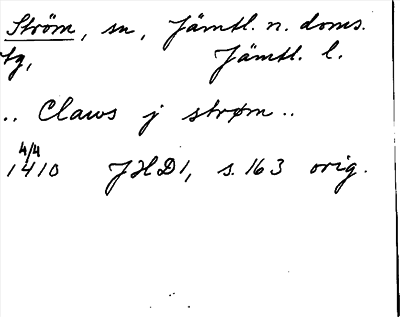 Ström, sn, Jämtl. n. doms.
tg, Jämtl. l.
.. Claws j strøm ..
4/4
1410 JHD 1, s. 163 orig.